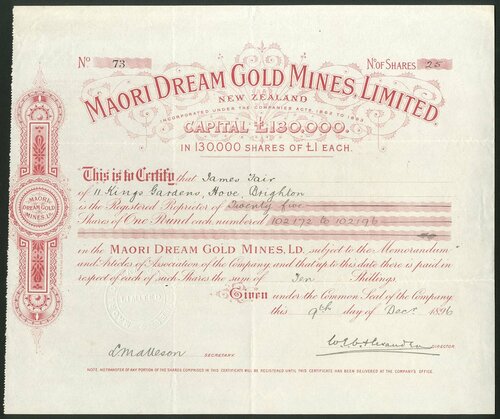 No 73 No. OF SHARES 25
MAORI DREAM GOLD MINES, LIMITED.
NEW ZEALAND
INCORPORATED UNDER THE COMPANIES ACTS, 1862 TO 1893
CAPITAL £130,000.
IN 130,000 SHARES OF £1 EACH.
This is to Certify that James Fair
of 11 Kings Gardens, Hove, Brighton
is the Registered Proprietor of Twenty five
Shares of ONE POUND each, numbered 102172 to 102196
MAORI
DREAM GOLD
MINES, LD.
in the MAORI DREAM GOLD MINES, LD. subject to the Memorandum
and Articles of Association of the Company and that up to this date there is paid in
respect of each of such Shares the sum of Ten Shillings.
Given under the Common Seal of the Company
this 9th day of Decr 1896
SECRETARY
DIRECTOR
NOTE. NO TRANSFER OF ANY PORTION OF THE SHARES COMPRISED IN THIS CERTIFICATE WILL BE REGISTERED UNTIL THIS CERTIFICATE HAS BEEN DELIVERED AT THE COMPANY'S OFFICE.